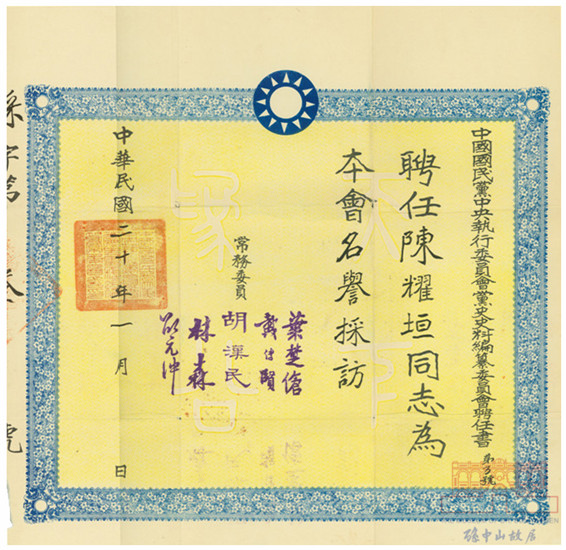 中國國民黨中央執行委員會黨史史料編纂委員會聘任書
聘任陳耀垣同志為
本會名譽採訪
常務委員
葉楚傖
戴傳賢
胡漢民
林森
邵元冲
中華民國二十年一月 日
採字第
號
孫中山故居